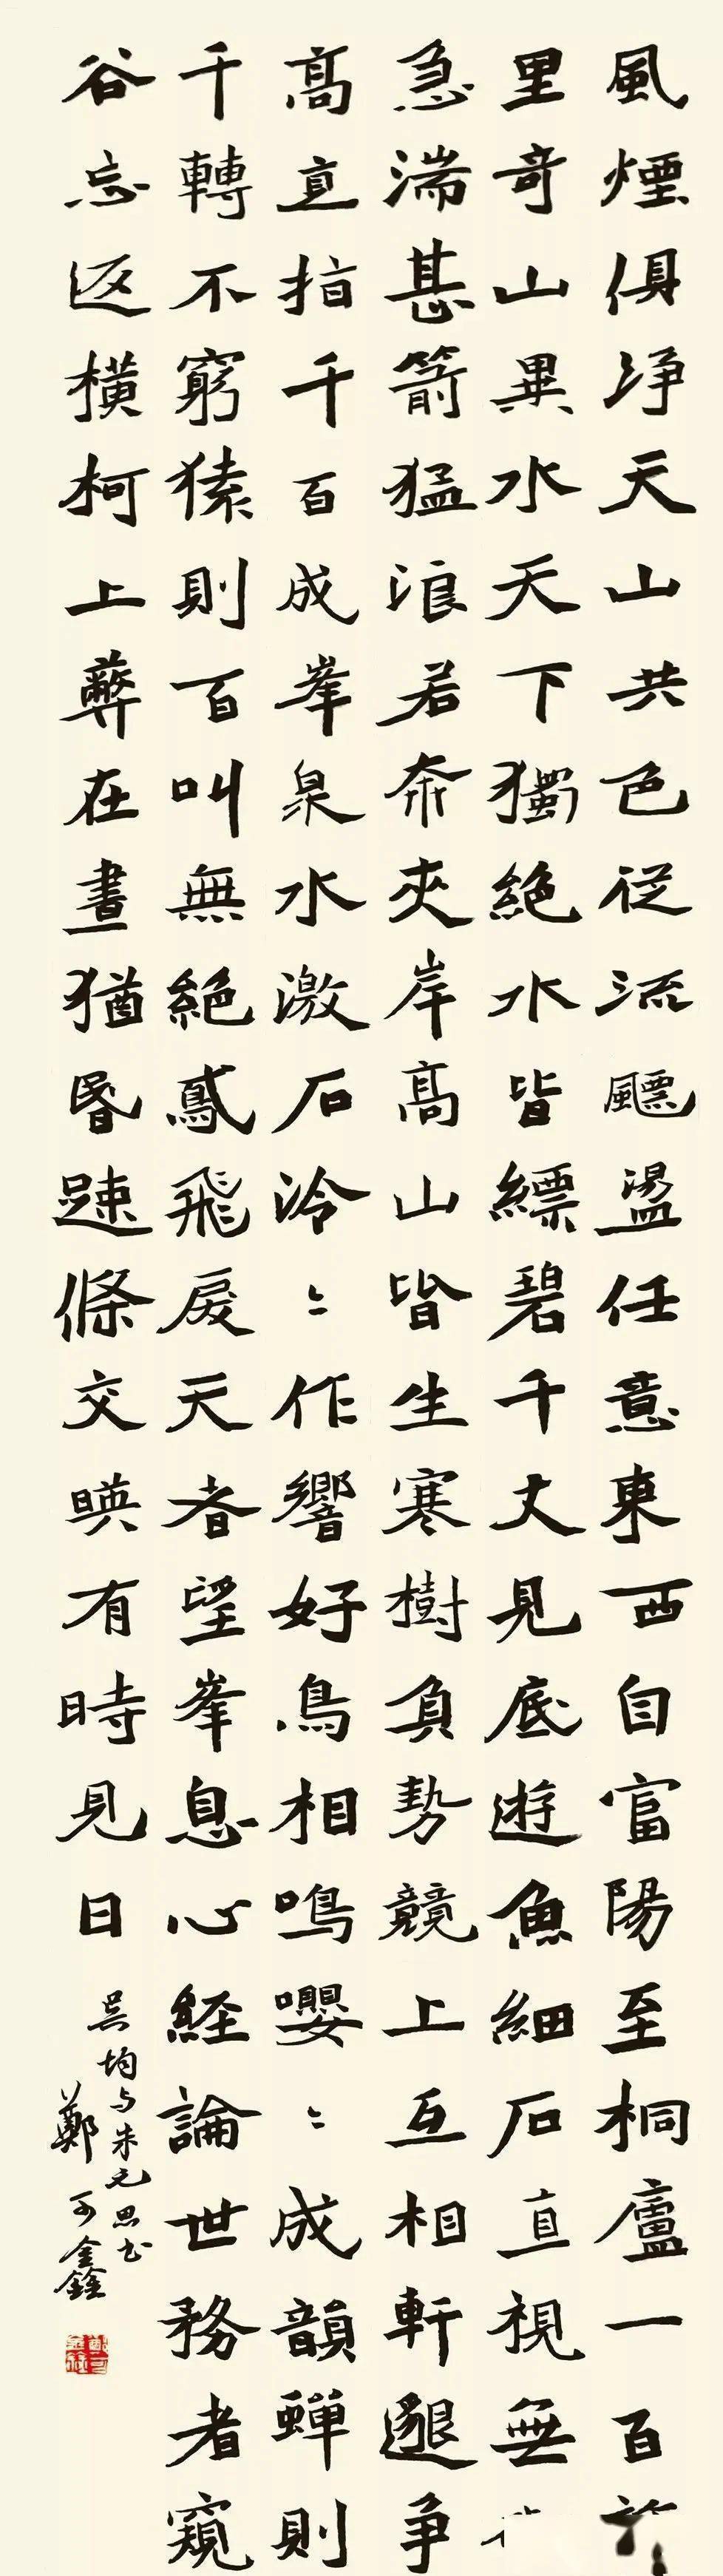 風煙俱净天山共色從流飃盪任意東西自富陽至桐廬一百
里奇山異水天下獨絶水皆縹碧千丈見底遊魚細石直視無
急湍甚箭猛浪若奔夾岸高山皆生寒樹負勢競上互相軒邈争
高直指千百成峯泉水激石泠〻作響好鳥相鳴嚶〻成韻蟬則
千轉不窮猿則百叫無絶鳶飛戾天者望峯息心経論世務者窺
谷忘返橫柯上蔽在晝猶昏踈條交暎有時見日
吴均与朱元思书
鄭可